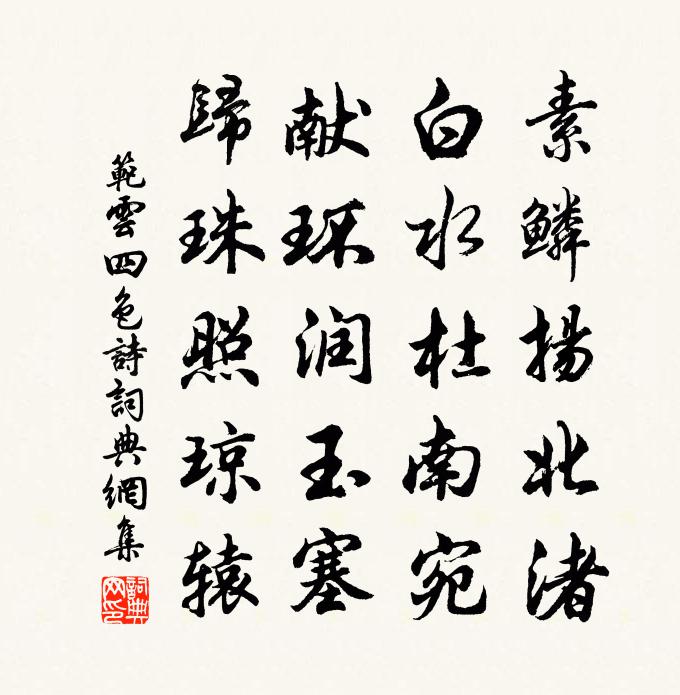 素鳞揚北渚
白水杜南宛
献环润玉塞
歸珠照琼辕
範雲四色詩詞典網集
詞典網印